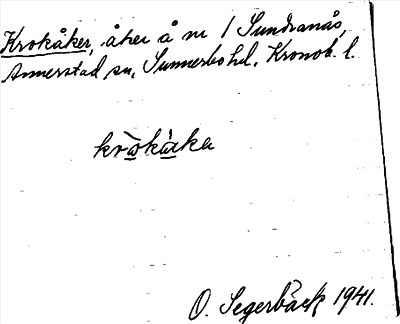 Krokåker, åker å nr 1 Sundranås,
Annerstad sn, Sunnerbo hd. Kronob. l.
kròkàka
O. Segerbäck 1941.